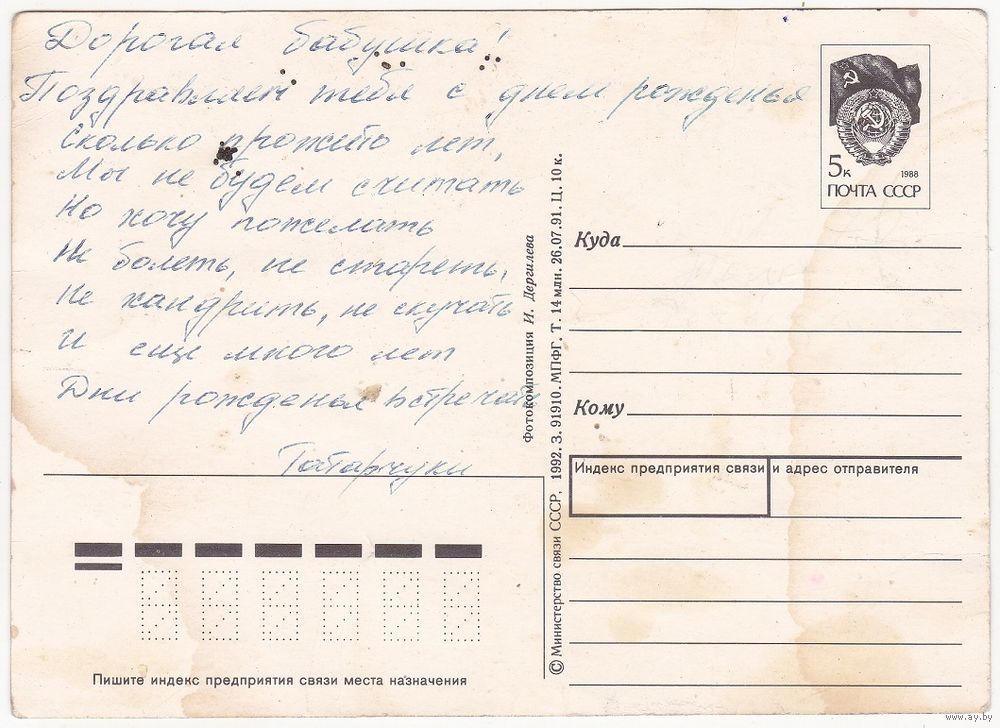 Дорогая бабушка!
Поздравляем тебя с днем рожденья
Сколько прожито лет,
Мы не будем считать
Но хочу пожелать
Не болеть, не стареть,
Не хандрить, не скучать
И еще много лет
Дни рожденья встречать
Татарчуки
5к 1988
ПОЧТА СССР
Куда
Кому
Индекс предприятия связи и адрес отправителя
Фотокомпозиция И. Дергилева
© Министерство связи СССР, 1992. З. 91910. МПФГ. Т. 14 млн. 26.07.91. Ц. 10 к.
Пишите индекс предприятия связи места назначения
www.ay.by